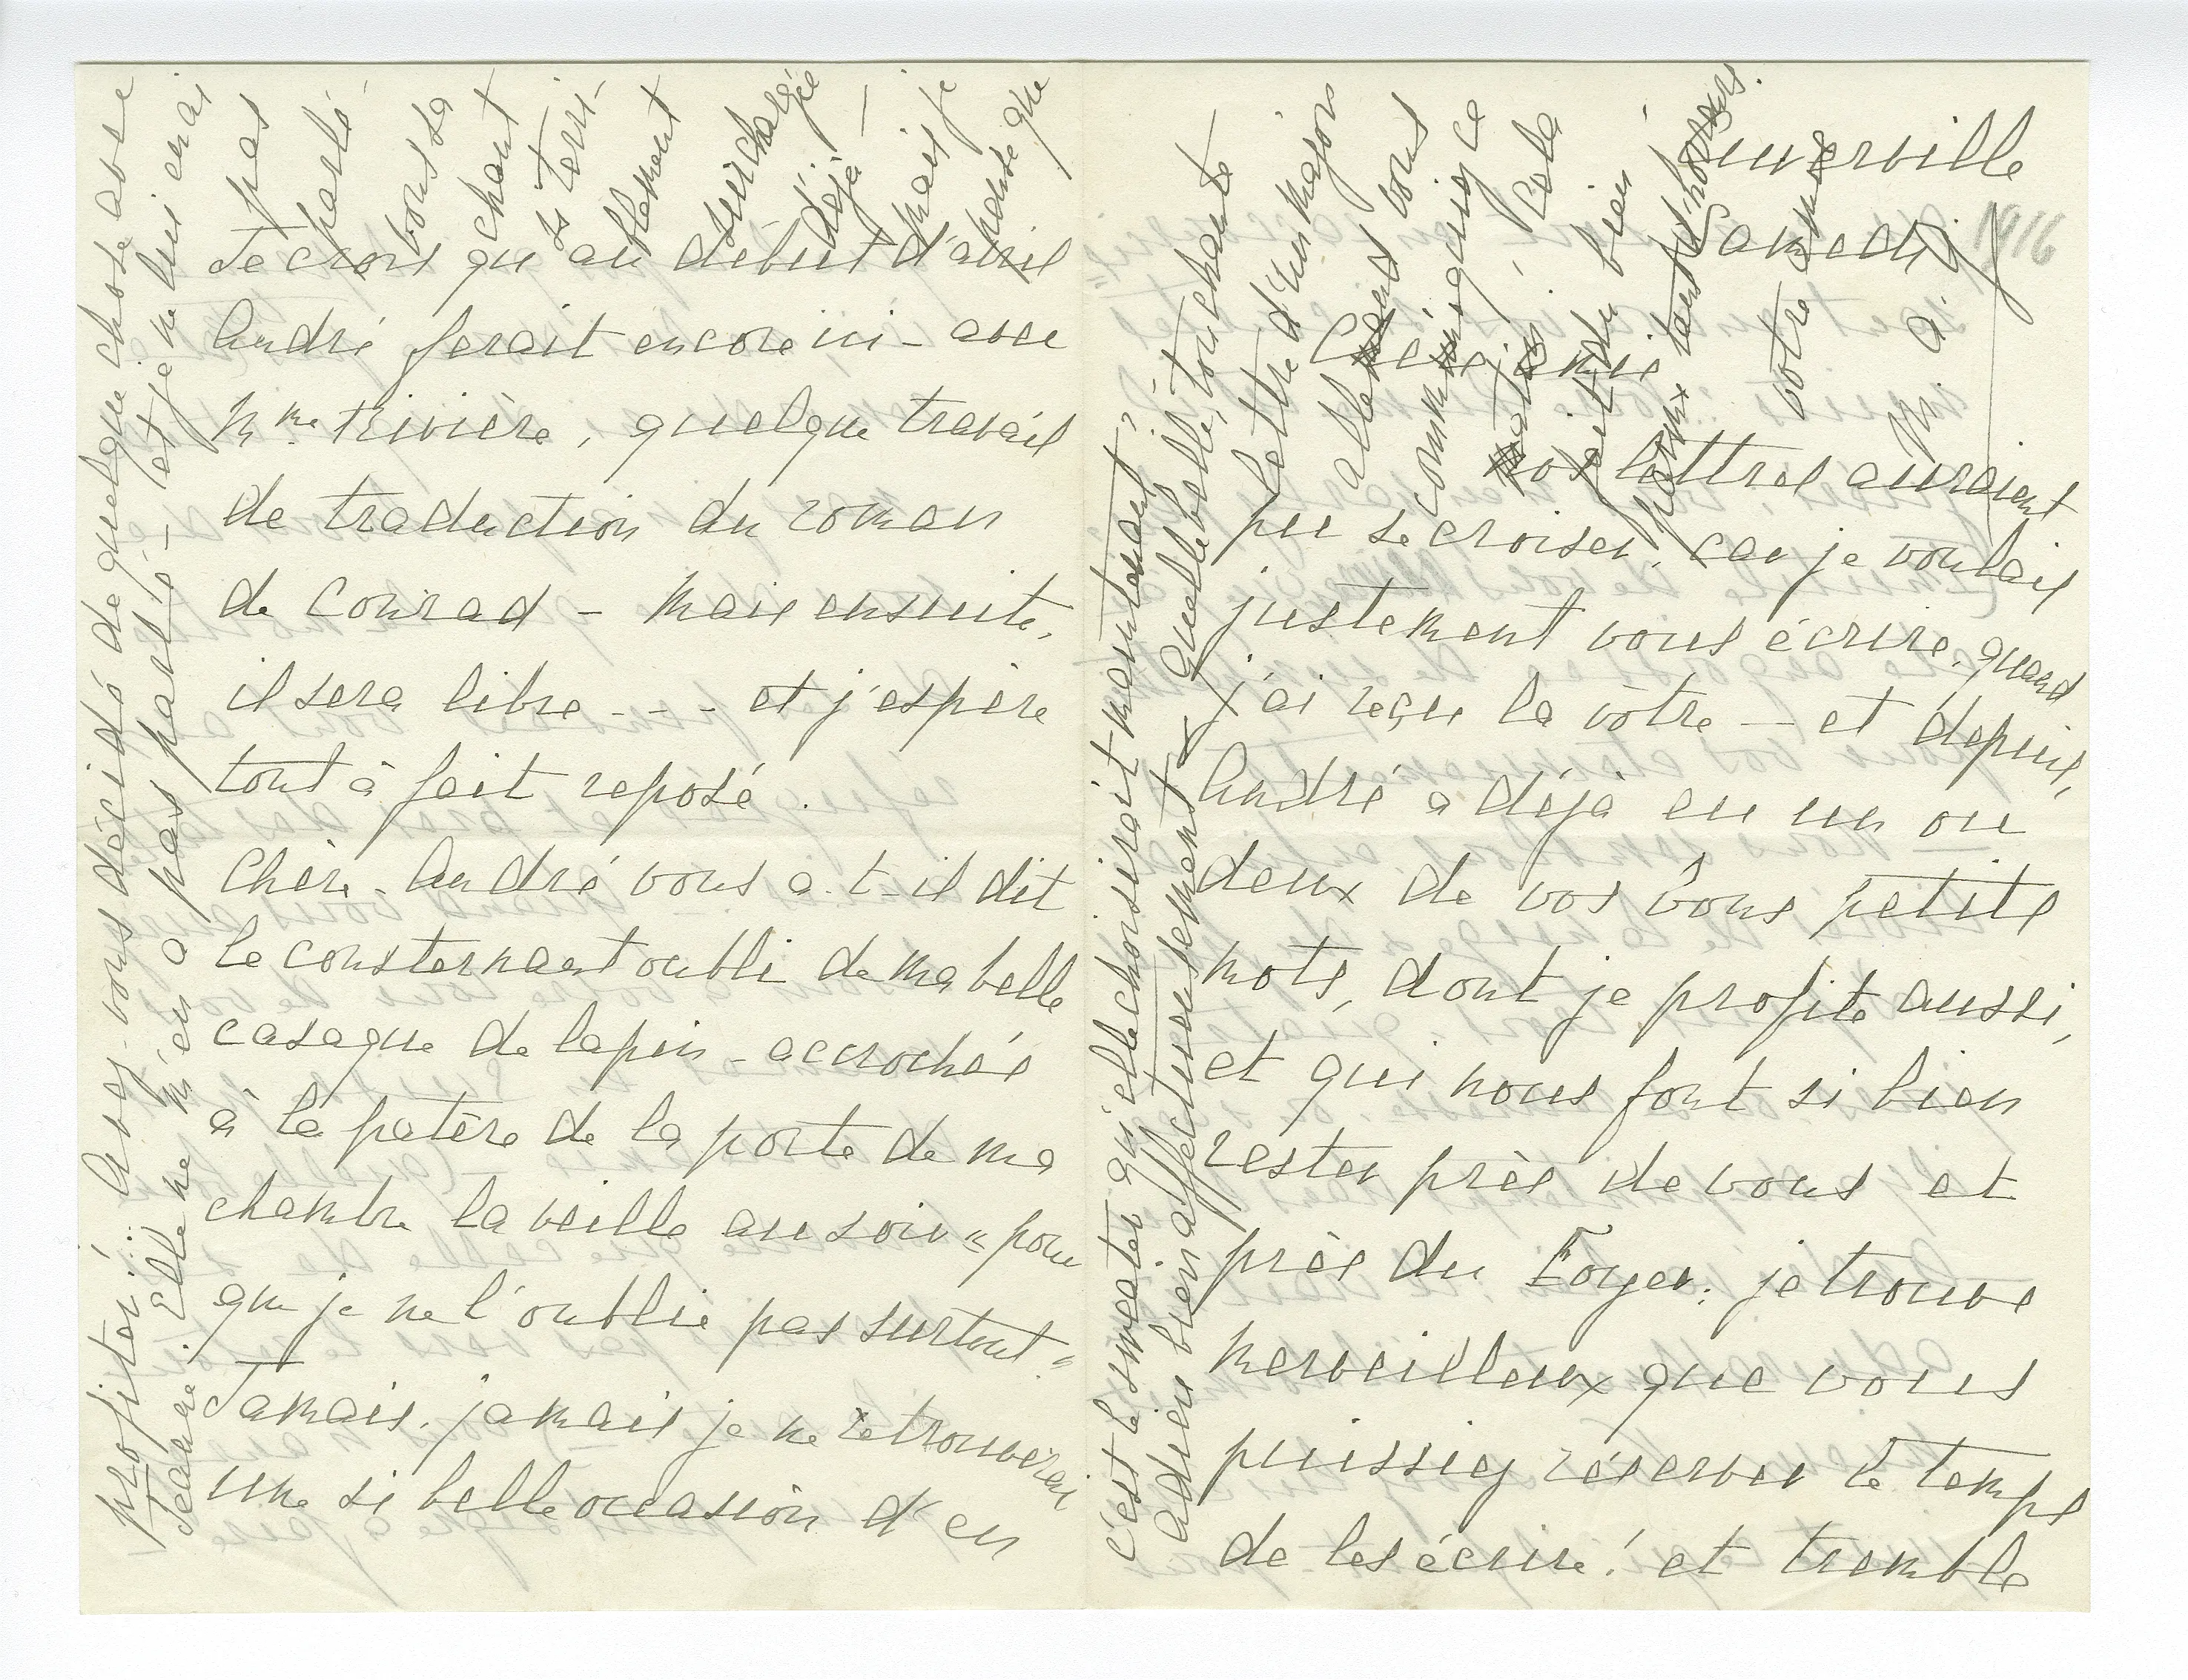 Cuverville
Samedi
1916
Chère amie
nos lettres auraient
pu se croiser, car je voulais
justement vous écrire, quand
j'ai reçu la vôtre — et depuis,
André a déjà eu un ou
deux de vos bons petits
mots, dont je profite aussi,
et qui nous font si bien
rester près de vous et
près du Foyer : je trouve
merveilleux que vous
puissiez réserver le temps
de les écrire ! et tremble
Je crois qu'au début d'avril
André ferait encore ici - avec
Mme Rivière, quelque travail
de traduction du roman
de Conrad - mais ensuite,
il sera libre - - - et j'espère
tout à fait reposé.
Chère - André vous a-t-il dit
le consternant oubli de ma belle
casaque de lapin - accrochée
à la patère de la porte de ma
chambre la veille au soir "pour
que je ne l'oublie pas surtout"
Jamais, jamais je ne retrouverai
une si belle occasion d'en
profiter ! Avez-vous décidé de quelque chose avec
Jeanne ? Elle ne m'en a pas parlé - et je ne lui en ai
pas
parlé
vous sa
chant
si terri-
blement
surchargée
déjà —
mais je
pense que
c'est le sweater qu'elle choisirait maintenant ?
Adieu bien affectueusement Quelle belle, touchante
lettre d'un major
allemand vous
communiquiez ce
matin ! Cela
fait du bien -
parmi tant d'horreurs.
votre amie
M. G.